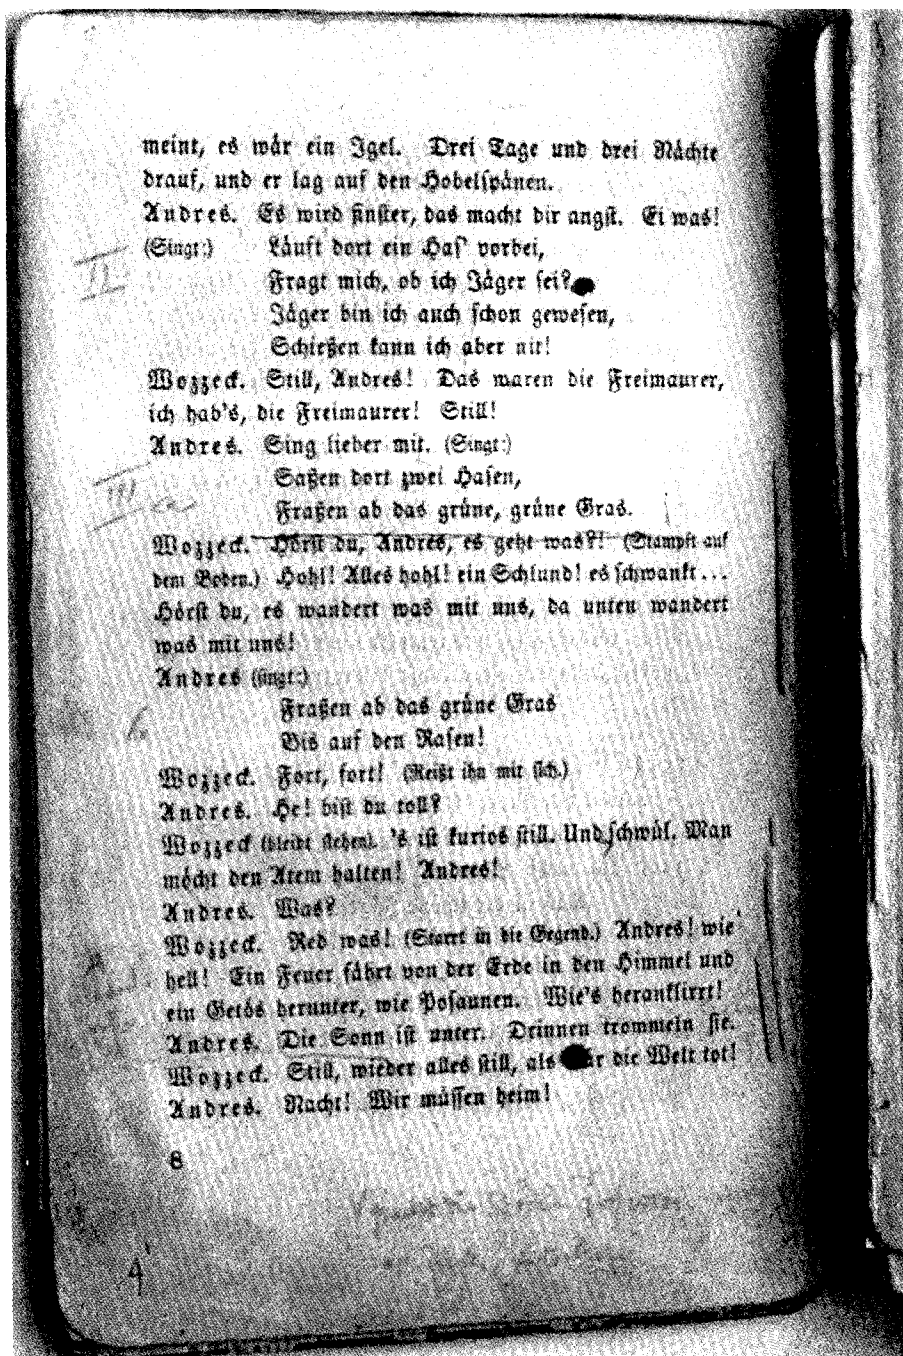 meint, es wär ein Igel. Drei Tage und drei Nächte
drauf, und er lag auf den Hobelspänen.
Andres. Es wird finster, das macht dir angst. Ei was!
(Singt:) Läuft dort ein Has' vorbei,
II
Fragt mich, ob ich Jäger sei?
Jäger bin ich auch schon gewesen,
Schießen kann ich aber nit!
Wozzeck. Still, Andres! Das waren die Freimaurer,
ich hab's, die Freimaurer! Still!
Andres. Sing lieber mit. (Singt:)
Saßen dort zwei Hasen,
III
Fraßen ab das grüne, grüne Gras.
Wozzeck. Hörst du, Andres, es geht was?! (Stampft auf
dem Boden.) Hohl! Alles hohl! ein Schlund! es schwankt...
Hörst du, es wandert was mit uns, da unten wandert
was mit uns!
Andres (singt:)
Fraßen ab das grüne Gras
Bis auf den Rasen!
Wozzeck. Fort, fort! (Reißt ihn mit sich.)
Andres. He! bist du toll?
Wozzeck (bleibt stehen). 's ist kurios still. Und schwül. Man
möcht den Atem halten! Andres!
Andres. Was?
Wozzeck. Red was! (Starrt in die Gegend.) Andres! wie
hell! Ein Feuer fährt von der Erde in den Himmel und
ein Getös herunter, wie Posaunen. Wie's heranklirrt!
Andres. Die Sonn ist unter. Drinnen trommeln sie.
Wozzeck. Still, wieder alles still, als die Welt tot!
Andres. Nacht! Wir müssen heim!
8
4